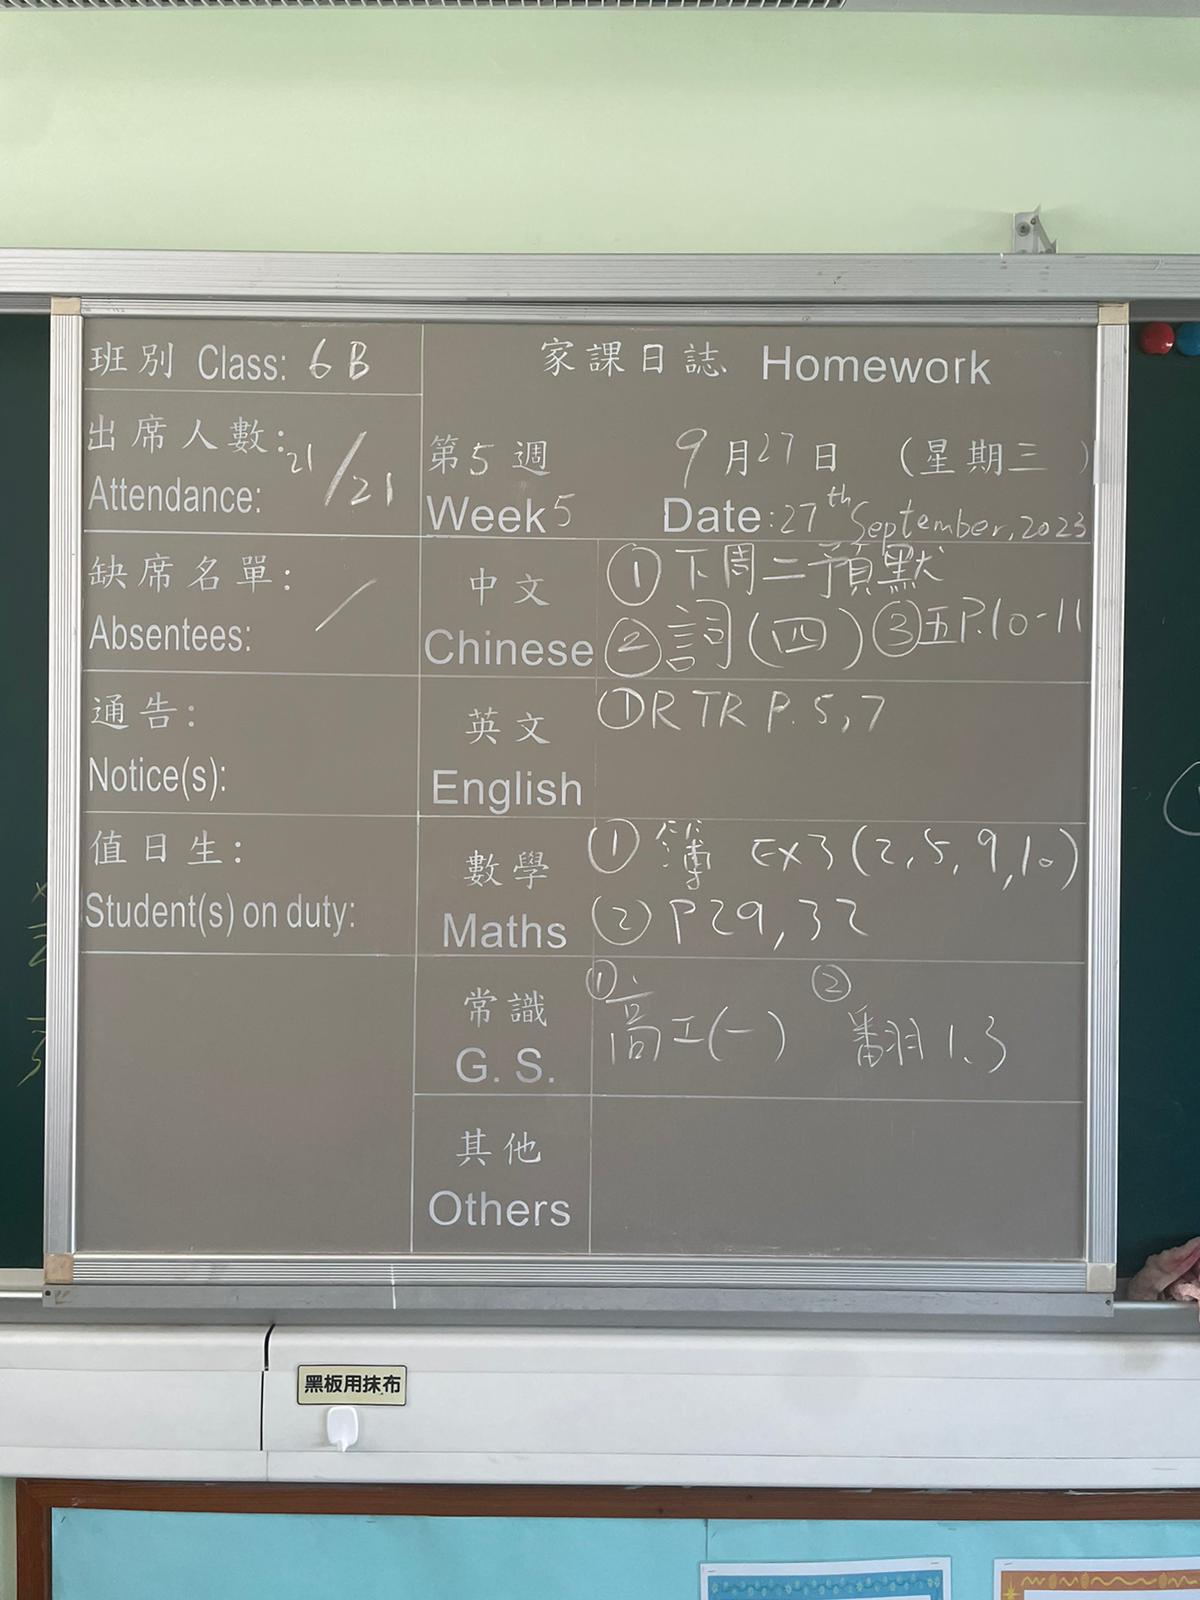 班別 Class: 6B
出席人數: 21/21
Attendance:
缺席名單: /
Absentees:
通告:
Notice(s):
值日生:
Student(s) on duty:
家課日誌 Homework
第5週 9月27日 (星期三)
Week 5 Date: 27th September, 2023
中文 ①下周二預默
Chinese ②詞(四) ③五P.10-11
英文 ①RTR P.5,7
English
數學 ①簿 Ex3(2,5,9,10)
Maths ②P29,32
常識 ①高工(一) ②翻1.3
G. S.
其他
Others
黑板用抹布